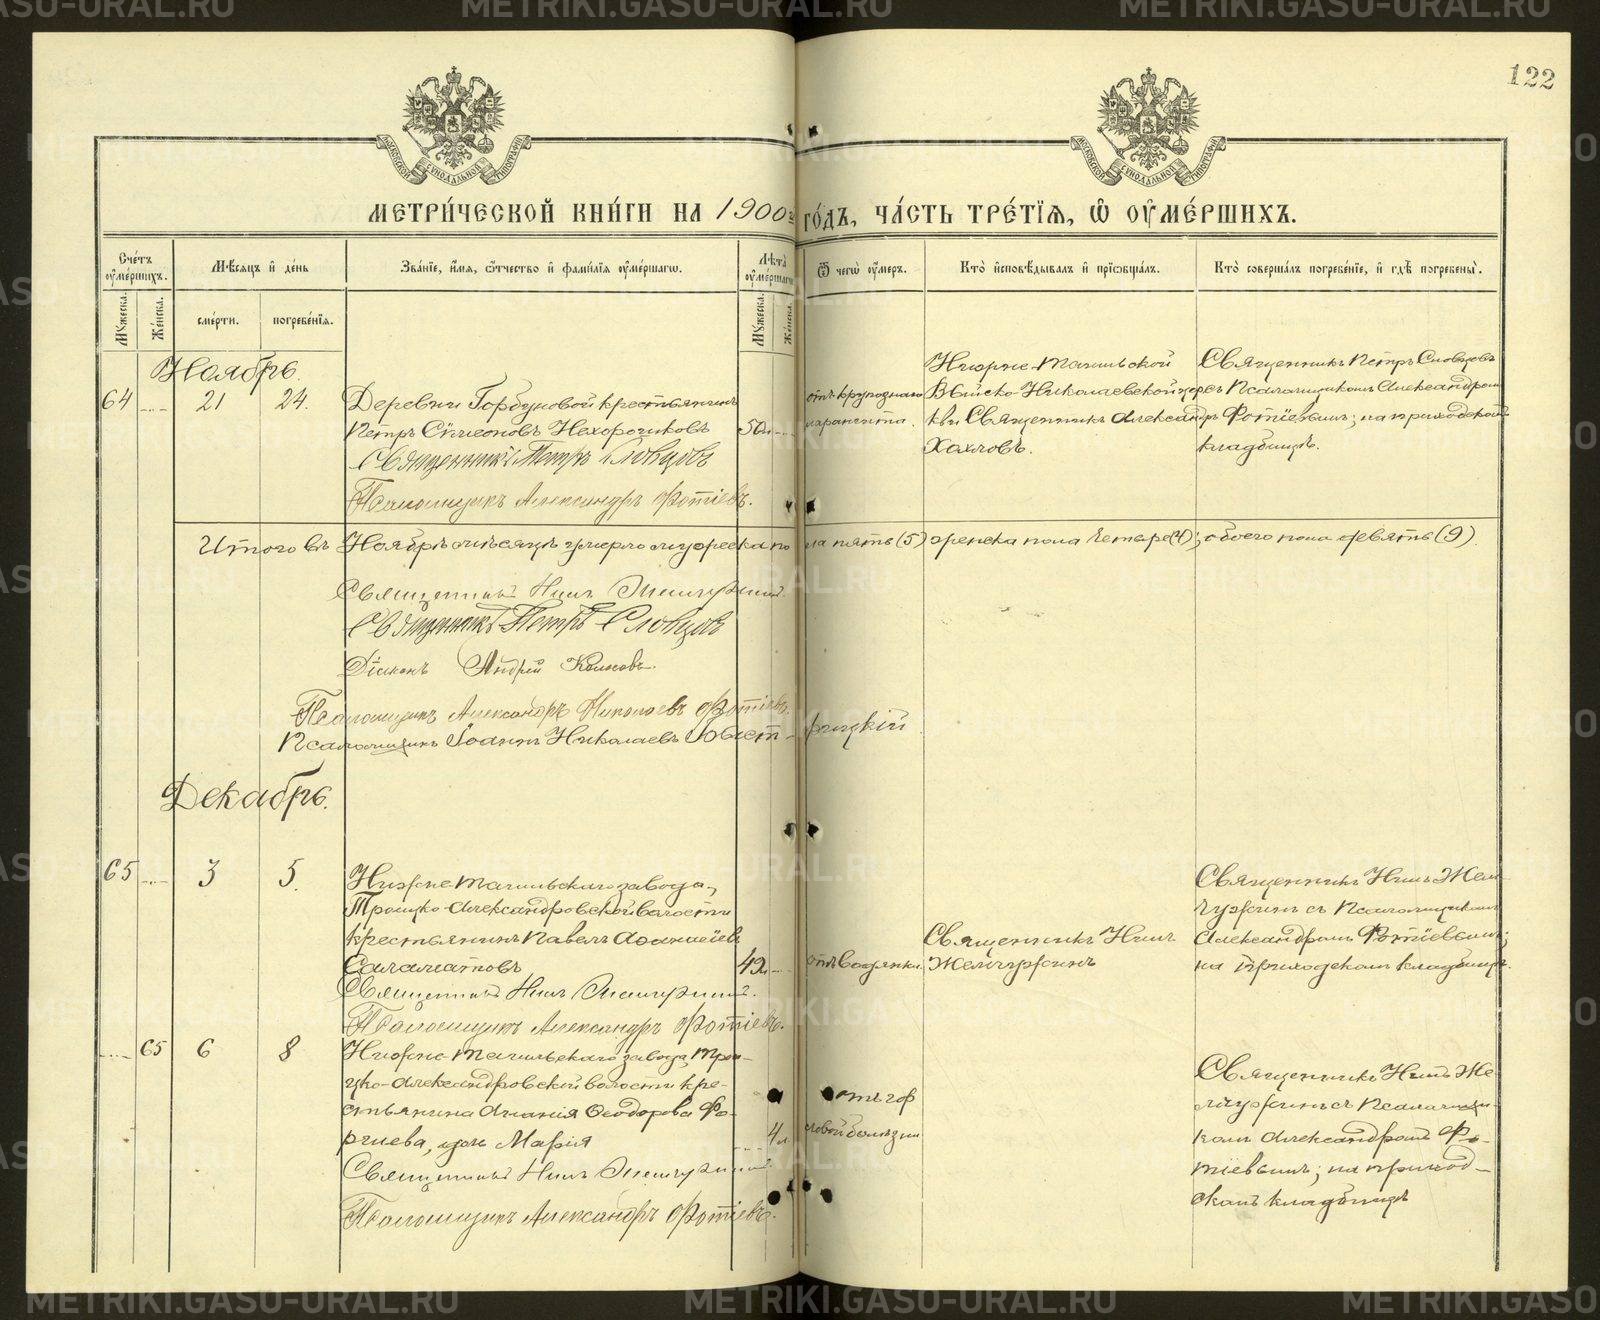 122
МЕТРИ́ЧЕСКОЙ КНИ́ГИ НА 1900й ГО́ДЪ, ЧА́СТЬ ТРЕ́ТІѦ, Ѡ҆ ОУ҆МЕ́РШИХЪ.
Сче́тъ оу҆ме́ршихъ.
Мꙋ́жеска.
Же́нска.
Мѣ́сѧцъ и҆ де́нь
сме́рти.
погребе́нїѧ.
Зва́нїе, и҆́мѧ, ѻ҆́тчество и҆ фами́лїѧ оу҆ме́ршагѡ.
Лѣ́та оу҆ме́ршагѡ
Мꙋ́жеска.
Же́нска.
Ѿ чегѡ̀ оу҆́меръ.
Кто̀ и҆сповѣ́дывалъ и҆ прїѡбща́лъ.
Кто̀ соверша́лъ погребе́нїе, и҆ гдѣ̀ погребены̀.
Ноябрь.
64 21 24.
Деревни Горбуновой крестьянинъ
Петръ Сѵмеоновъ Нехорошковъ
50
Священникъ Петръ Словцовъ
Псаломщикъ Александръ Фотіевъ.
отъ крупознаго
Нижне-Тагильской
Выйско-Николаевской цер
кви Священникъ Александръ
Хахловъ.
Священникъ Петръ Словцовъ
съ Псаломщикомъ Александромъ
Фотіевымъ; на приходскомъ
кладбищѣ.
Итого въ Ноябрѣ мѣсяцѣ умерло мужеска по
ла пять (5) женска пола четыре (4); обоего пола девять (9)
Священникъ Нилъ Жемчужинъ.
Священникъ Петръ Словцовъ
Діаконъ Андрей
Псаломщикъ Александръ Николаевъ Фотіевъ.
Псаломщикъ Іоаннъ Николаевъ
Декабрь.
65 3 5.
Нижне-Тагильскаго завода,
Троицко-Александровской волости
крестьянинъ Павелъ
Саламатовъ
49
Священникъ Нилъ Жемчужинъ.
Псаломщикъ Александръ Фотіевъ.
отъ водянки.
Священникъ Нилъ
Жемчужинъ
Священникъ Нилъ Жем
чужинъ съ Псаломщикомъ
Александромъ Фотіевымъ;
на приходскомъ кладбищѣ.
65 6 8
Нижне-Тагильскаго завода, Трои-
цко-Александровской волости кре-
стьянина Ананія Ѳеодорова
дочь Марія
4
Священникъ Нилъ Жемчужинъ.
Псаломщикъ Александръ Фотіевъ.
отъ гор
ловой болѣзни
Священникъ Нилъ Же
мчужинъ съ Псаломщи-
комъ Александромъ Фо-
тіевымъ; на приход-
скомъ кладбищѣ